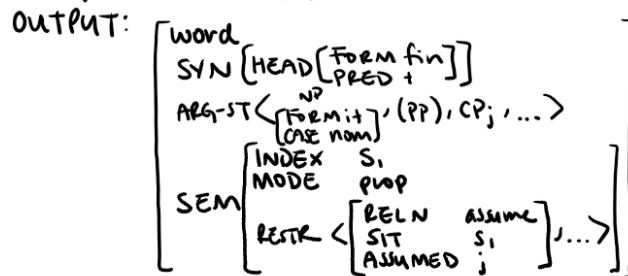 OUTPUT:
word
SYN [HEAD [FORM fin
PRED +]]
NP
ARG-ST < [FORM it
CASE nom] , (PP), CPj , ... >
INDEX s1
MODE prop
SEM
RESTR < [RELN assume
SIT s1
ASSUMED j] , ... >